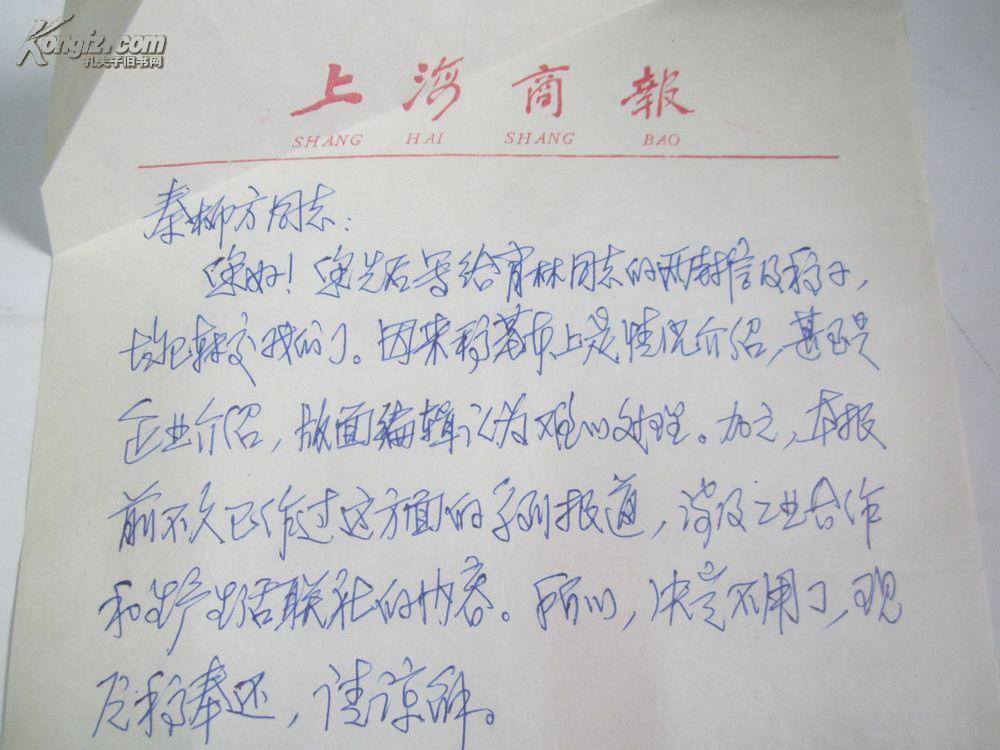 Kongfz.com
孔夫子旧书网
上海商報
SHANG HAI SHANG BAO
秦柳方同志：
您好！您先后写给肖林同志的两封信及稿子，
均已转交我们了。因来稿基本上是情况介绍，甚至是
企业介绍，版面编辑认为难以处理。加之，本报
前不久已作过这方面的系列报道，涉及工业合作
和生产生活联社的内容。所以，决定不用了，现
将稿奉还，请谅解。